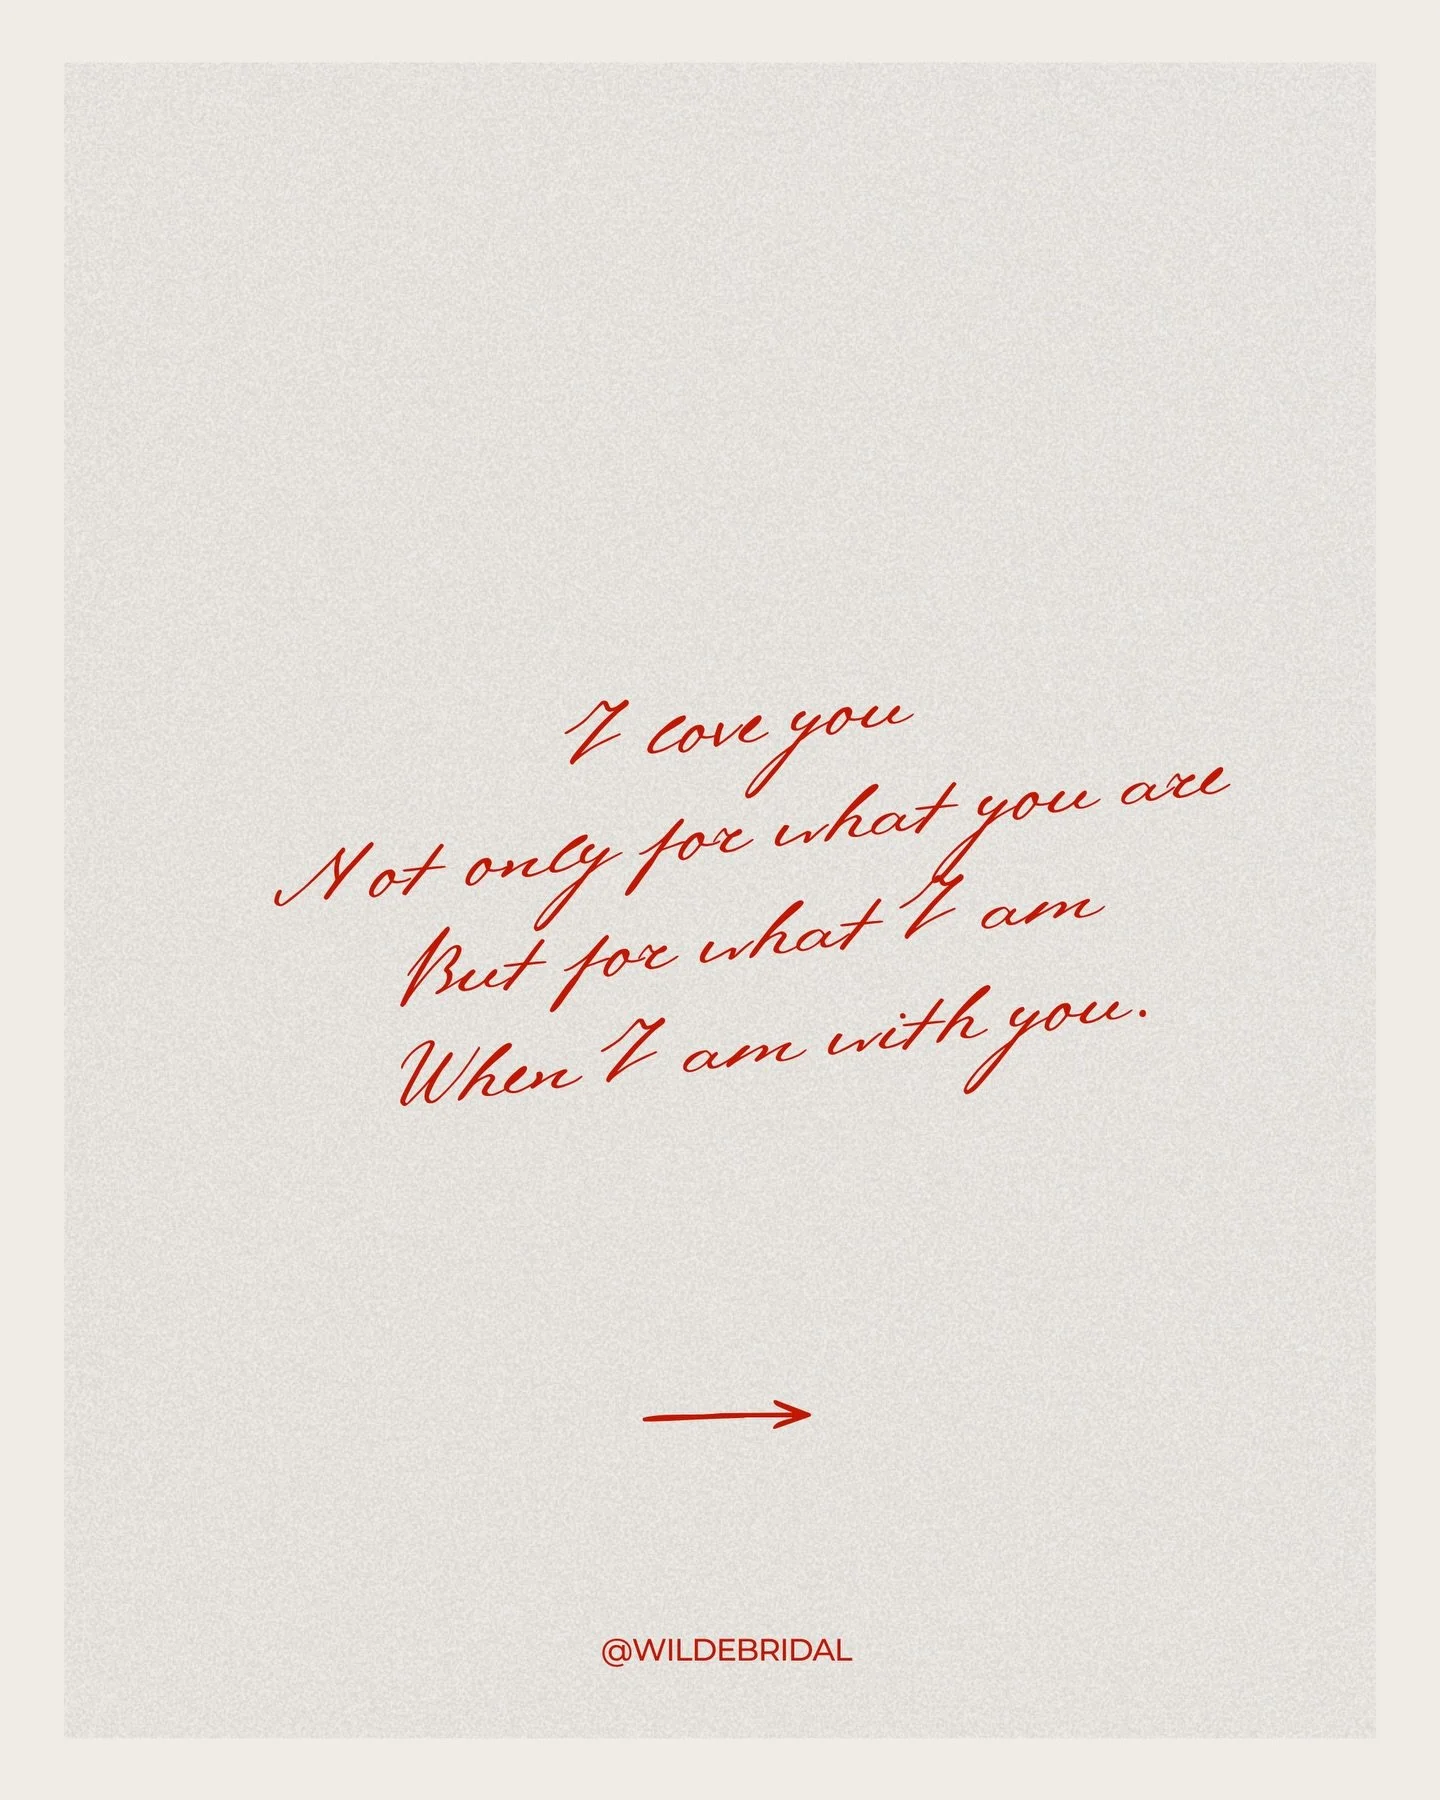 I love you
Not only for what you are
But for what I am
When I am with you.
@WILDEBRIDAL